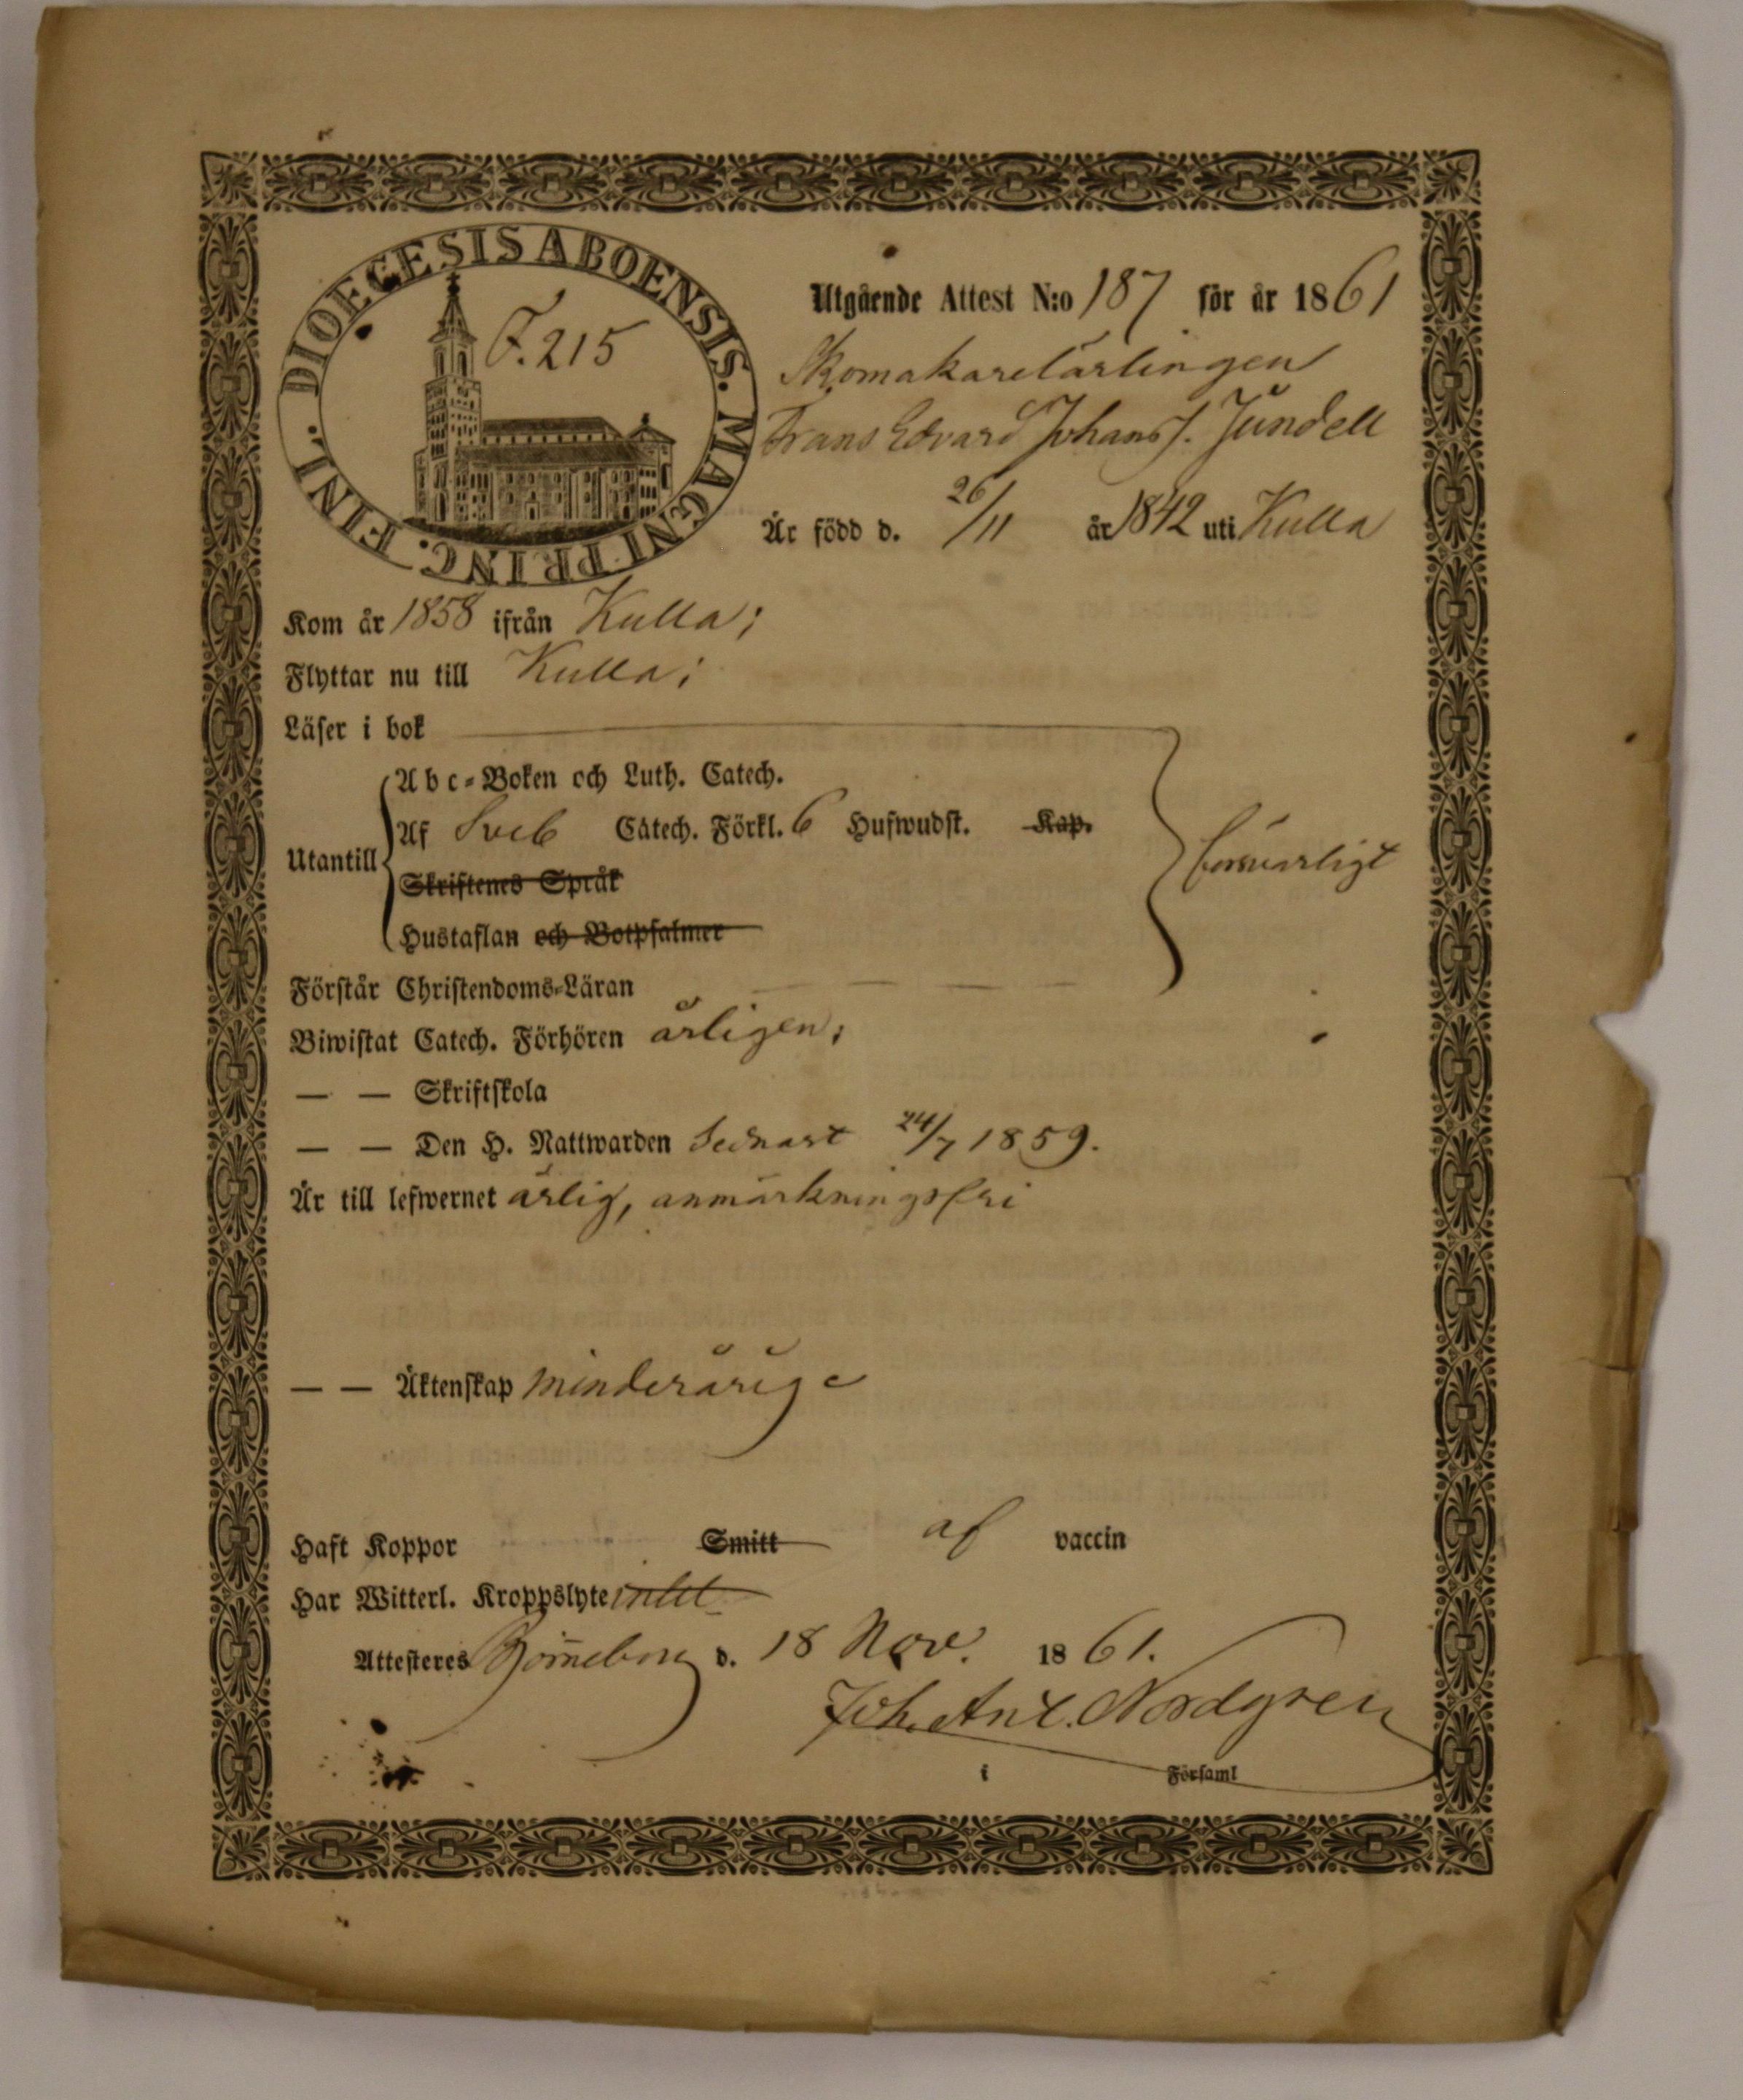 DIOECESIS ABOENSIS. MAGNI PRINC. FINL.
F. 215
Utgående Attest N:o 187 för år 1861
Skomakarelärlingen
Frans Edvard Johans s. Jundell
Är född d. 26/11 år 1842 uti Kulla
Kom år 1858 ifrån Kulla;
Flyttar nu till Kulla;
Läser i bok
Utantill
Abc-Boken och Luth. Catech.
Af Sveb Catech. Förkl. 6 Hufwudst. Kap.
Skriftenes Språk
Hustaflan och Botpsalmer
försvarligt
Förstår Christendoms-Läran
Biwistat Catech. Förhören årligen;
— — Skriftskola
— — Den H. Nattwarden sednast 24/7 1859.
Är till lefwernet ärlig, anmärkningsfri
— — Äktenskap minderårig
Haft Koppor Smitt af vaccin
Har Witterl. Kroppslyte intet
Attesteres Björneborg d. 18 Nov. 1861.
Joh. Ant. Nordgren
i Församl